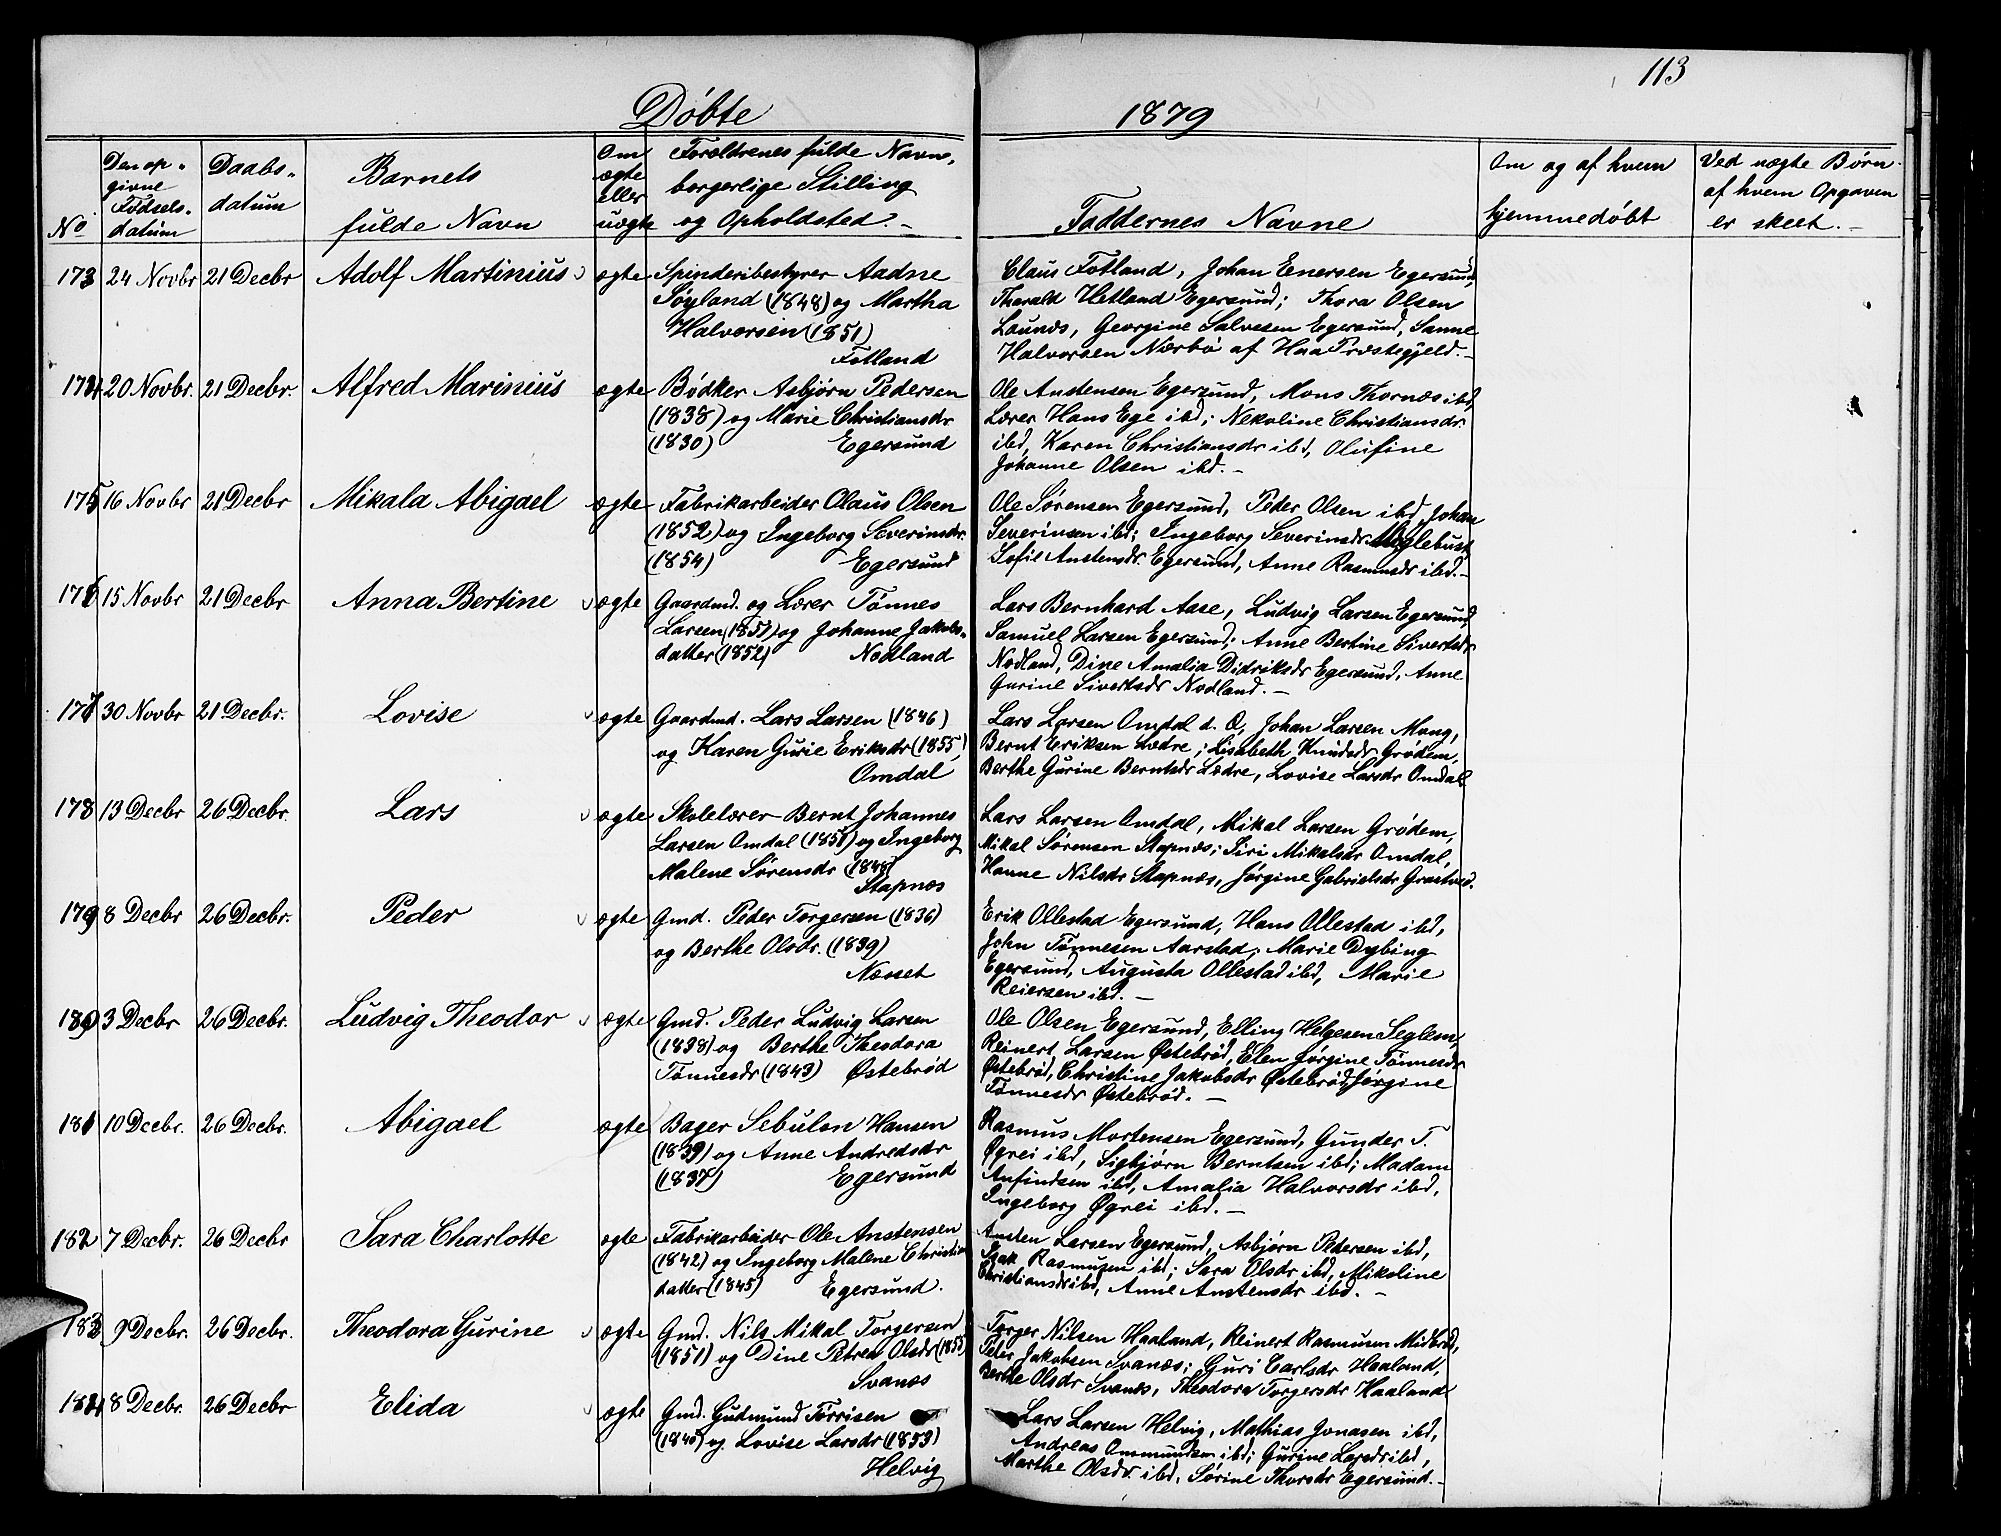 113
Døbte
1879
No
Den op-
givne
Fødsels-
datum
Daabs-
datum
Barnets
fulde Navn
Om
ægte
eller
uægte
Forældrenes fulde Navn,
borgerlige Stilling
og Opholdsted.-
Faddernes Navne
Om og af hvem
hjemmedøbt
Ved uægte Børn
af hvem Opgaven
er skeet.-
173 24 Novbr 21 Decbr Adolf Martinius ægte Spinderibestyrer Aadne
Søyland (1848) og Martha
Halvorsen (1851)
Fotland
Claus Fotland, Johan Enersen Egersund,
Tharald Hetland Egersund; Thora Olsen
Launæs, Georgine Salvesen Egersund, Sanne
Halvorsen Nærbø af Haa Præstegjeld.-
174 20 Novbr. 21 Decbr. Alfred Marinius ægte Bødker Asbjørn Pedersen
(1838) og Marie Christiansdr
(1830) Egersund
Ole Anstensen Egersund, Mons Thornæs ibd,
Lærer Hans Ege ibd; Nekoline Christiansdr
ibd, Karen Christiansdr ibd, Olufine
Johanne Olsen ibd.-
175 16 Novbr 21 Decbr Mikala Abigael ægte Fabrikarbeider Olaus Olsen
(1852) og Ingeborg Severinsdr.
(1854) Egersund
Ole Sørensen Egersund, Peder Olsen ibd, Johan
Severinsen ibd; Ingeborg Severinsdr Møglebust
Sofie Anstensdr. Egersund, Anne Rasmusdr ibd.-
176 15 Novbr 21 Decbr Anna Bertine ægte Gaardmd. og Lærer Tønnes
Larsen (1851) og Johanne Jakobs-
datter (1852) Nodland
Lars Bernhard Aase, Ludvig Larsen Egersund,
Samuel Larsen Egersund; Anne Bertine Sivertsdr
Nodland, Dine Amalia Didriksdr Egersund, Anne
Gurine Sivertsdr Nodland.-
177 30 Novbr 21 Decbr. Lovise ægte Gaardmd. Lars Larsen (1846)
og Karen Gurie Eriksdr (1855)
Omdal
Lars Larsen Omdal d. Æ, Johan Larsen Mong,
Bernt Eriksen Lædre; Lisabeth Knudsdr Grødem,
Berthe Gurine Berntsdr Lædre, Lovise Larsdr Omdal
178 13 Decbr 26 Decbr. Lars ægte Skolelærer Bernt Johannes
Larsen Omdal (1851) og Ingeborg
Malene Sørensdr (1848)
Stapnæs
Lars Larsen Omdal, Mikal Larsen Grødem,
Mikal Sørensen Stapnæs; Siri Mikalsdr Omdal,
Hanne Nilsdr Stapnæs, Jørgine Gabrielsdr Grastved.
179 8 Decbr 26 Decbr. Peder ægte Gmd. Peder Torgersen (1836)
og Berthe Olsdr. (1839)
Næsset
Erik Ollestad Egersund, Hans Ollestad ibd,
John Tønnesen Aarstad; Marie Dybing
Egersund, Augusta Ollestad ibd, Marie
Reiersen ibd.-
180 3 Decbr 26 Decbr. Ludvig Theodor ægte Gmd. Peder Ludvig Larsen
(1838) og Berthe Theodora
Tønnesdr (1843) Østebrød
Ole Olsen Egersund, Elling Helgesen Seglem,
Reinert Larsen Østebrød, Elen Jørgine Tønnesdr
Østebrød, Christine Jakobsdr Østebrød, Jørgine
Tønnesdr Østebrød.-
181 10 Decbr. 26 Decbr. Abigael ægte Bager Sebulon Hansen
(1839) og Anne Andreasdr
(1837) Egersund
Rasmus Mortensen Egersund, Gunder T.
Øgrei ibd, Sigbjørn Berntsen ibd; Madam
Anfindsen ibd, Amalia Halvorsdr ibd,
Ingeborg Øgrei ibd.-
182 7 Decbr. 26 Decbr Sara Charlotte ægte Fabrikarbeider Ole Anstensen
(1842) og Ingeborg Malene Christian
datter (1845) Egersund.
Ansten Larsen Egersund, Asbjørn Pedersen ibd,
Isak Rasmusen ibd; Sara Olsdr ibd, Mikoline
Christiansdr ibd, Anne Anstensdr ibd.-
183 9 Decbr. 26 Decbr. Theodora Gurine ægte Gmd. Nils Mikal Torgersen
(1851) og Dine Petrea Olsdr (1855)
Svanæs
Torger Nilsen Haaland, Reinert Rasmusen Midbrød,
Peter Jakobsen Svanæs; Guri Carlsdr Haaland,
Berthe Olsdr Svanæs, Theodora Torgersdr Haaland
184 8 Decbr. 26 Decbr Elida ægte Gmd. Gudmund Tørrisen
(1840) og Lovise Larsdr (1853)
Helvig
Lars Larsen Helvig, Mathias Jonasen ibd,
Andreas Ommundsen ibd; Gurine Larsdr ibd,
Marthe Olsdr ibd, Sørine Thorsdr Egersund.-